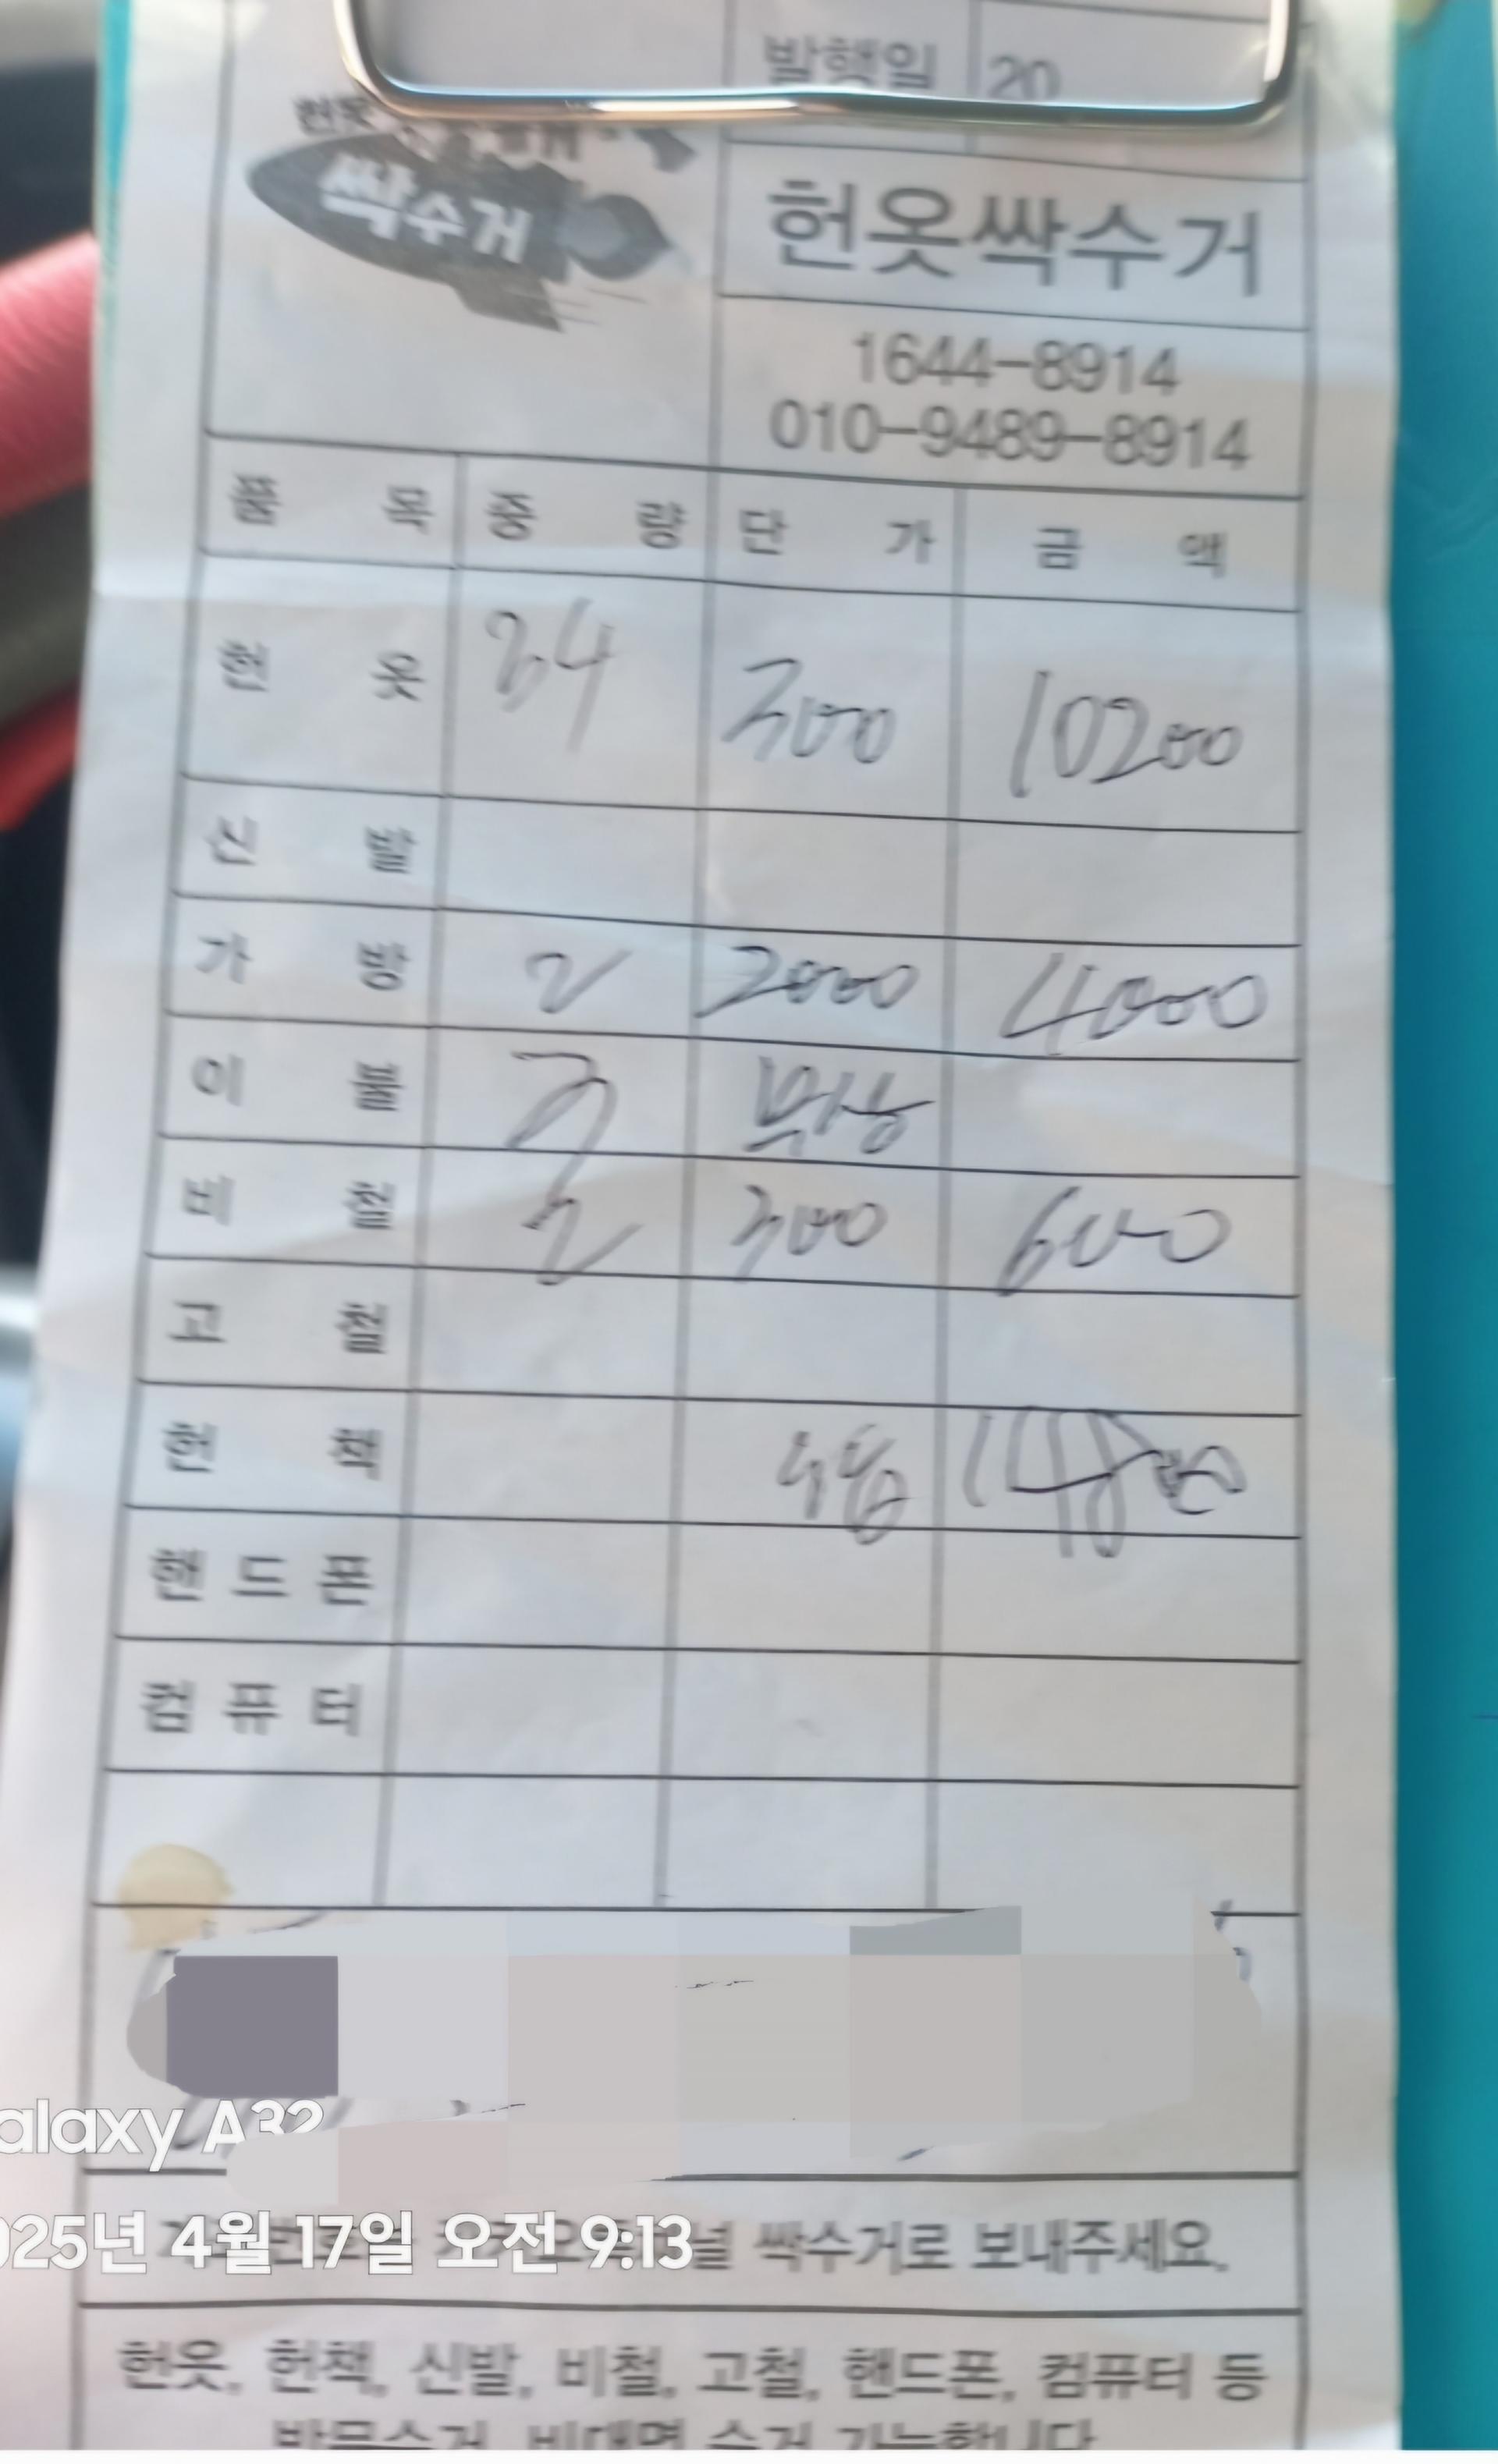 발행일 20
싹수거
헌옷싹수거
1644-8914
010-9489-8914
품목 중량 단가 금액
헌옷 34 300 10200
신발
가방 2 2000 4000
이불 3 무상
비철 2 300 600
고철
헌책 14800
핸드폰
컴퓨터
alaxy A32
025년 4월 17일 오전 9:13
싹수거로 보내주세요.
헌옷, 헌책, 신발, 비철, 고철, 핸드폰, 컴퓨터 등
방문수거, 비대면 수거 가능합니다